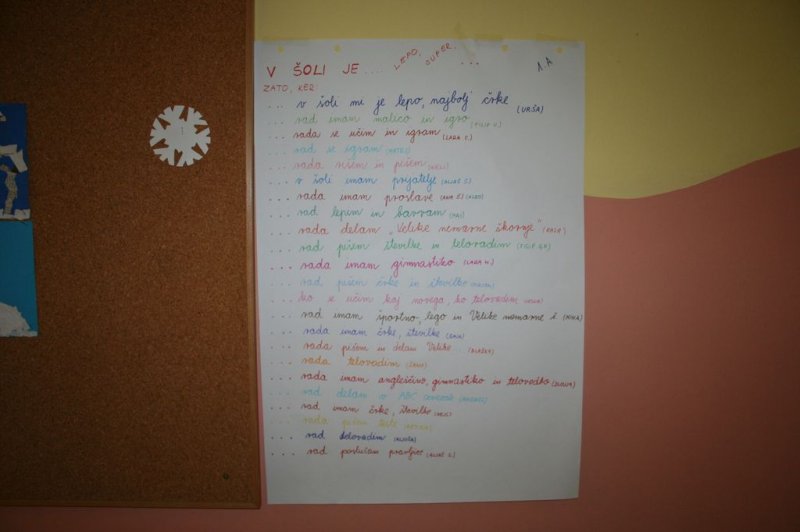 V ŠOLI JE .... LEPO, SUPER. ...
1.A
ZATO, KER:
... v šoli mi je lepo, najbolj črke (URŠA)
... rad imam malico in igro (FILIP V.)
... rada se učim in igram (ZARA C.)
... rad se igram
... rada rišem in pišem
... v šoli imam prijatelje (ALJAŽ S.)
... rada imam proslave
... rad lepim in barvam
... rada delam "Velike nemarne škornje"
... rad pišem številke in telovadim
... rada imam gimnastiko (LARA H.)
... rad pišem črke in številko
... ko se učim kaj novega, ko telovadim
... rad imam športno, lego in Velike nemarne š. (MIHA)
... rada imam črke, številke
... rada pišem in delam Velike
... rada telovadim
... rada imam angleščino, gimnastiko in telovadbo
... rad delam v ABC
... rad imam črke, številko
... rada pišem
... rad telovadim
... rad poslušam pravljice